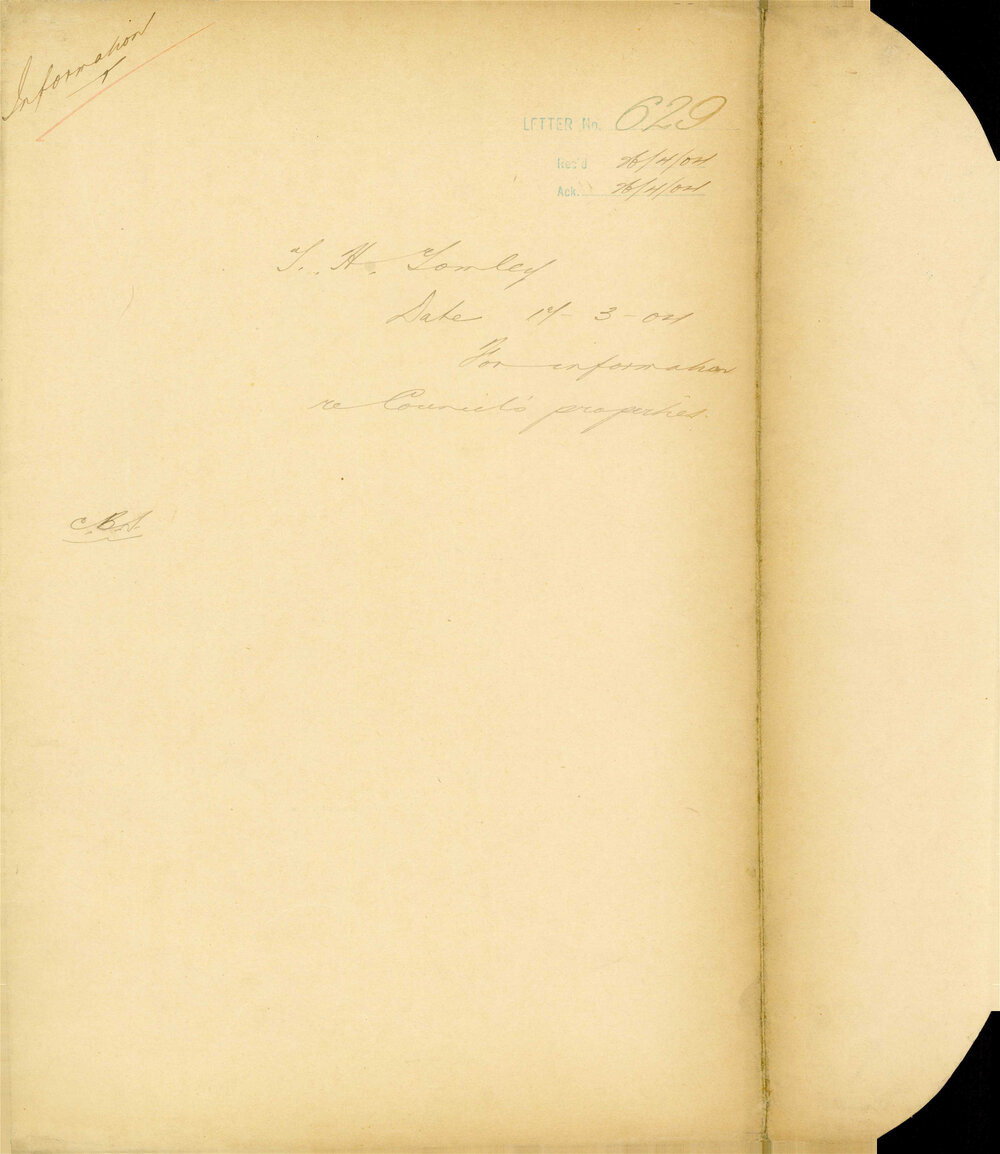 Information
LETTER No. 629
Rec'd 26/4/04
Ack. 26/4/04
T. H.
Date - 3 - 04
For information
re Council's properties.